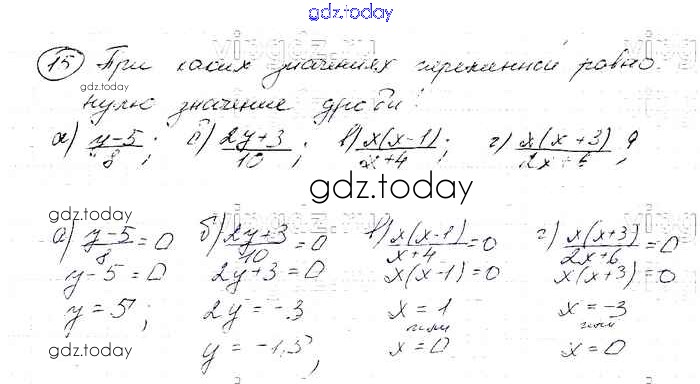 gdz.today
15 При каких значениях переменной равно
gdz.today
нулю значение дроби:
а) y-5/8; б) 2y+3/10; в) x(x-1)/x+4; г) x(x+3)/2x+6?
gdz.today
gdz.today
а) y-5/8=0 б) 2y+3/10=0 в) x(x-1)/x+4=0 г) x(x+3)/2x+6=0
y-5=0 2y+3=0 x(x-1)=0 x(x+3)=0
y=5; 2y=-3 x=1 x=-3
или или
gdz.today y=-1,5; x=0 x=0
gdz.today